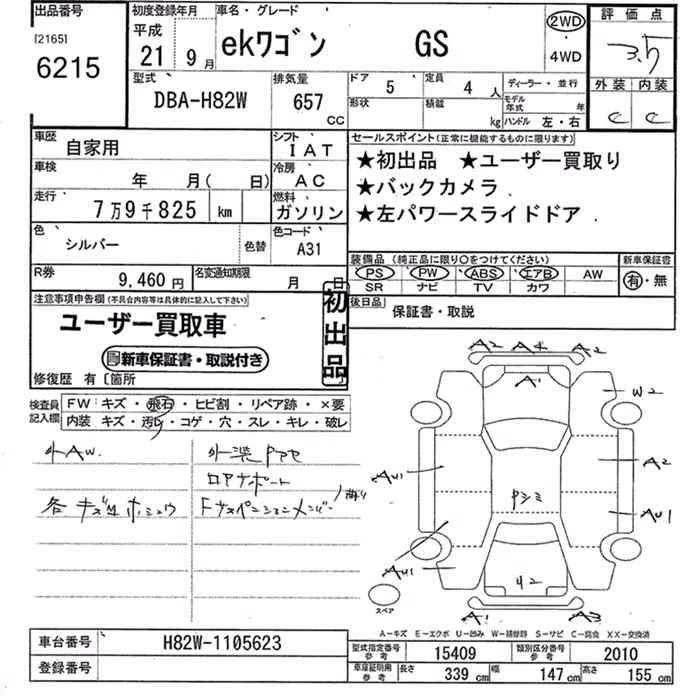 出品番号 初度登録年月 車名・グレード 評価点
[2165] 平成 2WD
6215 21 9月 ekワゴン GS 4WD 3.5
型式 排気量 ドア 5 定員 4人 ディーラー・並行 外装 内装
DBA-H82W 657 CC 形状 積載 kg モデル年式 年 ハンドル 左・右 C C
車歴 自家用 シフト IAT セールスポイント(正常に機能するものに限ります)
車検 年 月( 日) 冷房 AC ★初出品 ★ユーザー買取り
★バックカメラ
走行 7万9千825 km 燃料 ガソリン ★左パワースライドドア
色 シルバー 色替 色コード A31
装備品(純正品に限り○をつけてください) 新車保証書
R券 9,460円 名変通知期限 月 日 PS PW ABS エアB AW 有・無
SR ナビ TV カワ
注意事項申告欄(不具合内容等は具体的に記入して下さい) 初出品 後日品 保証書・取説
ユーザー買取車
新車保証書・取説付き
修復歴 有〔箇所
検査員記入欄 FW:キズ・飛石・ヒビ割・リペア跡・×要
内装:キズ・汚れ・コゲ・穴・スレ・キレ・破レ
A2 A4 A2
A1
W2
社外AW.
A2
AU1
AU1
AU1
A2
A1 A3
スペア
A-キズ E-エクボ U-凹み W-補修跡 S-サビ C-腐食 XX-交換済
車台番号 H82W-1105623 型式指定番号参考 15409 類別区分番号参考 2010
登録番号 車庫証明用参考 長さ 339cm 幅 147cm 高さ 155cm